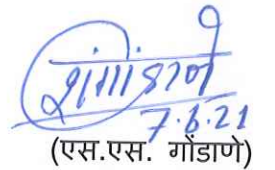 7.6.21
(एस.एस. गोंडाणे)